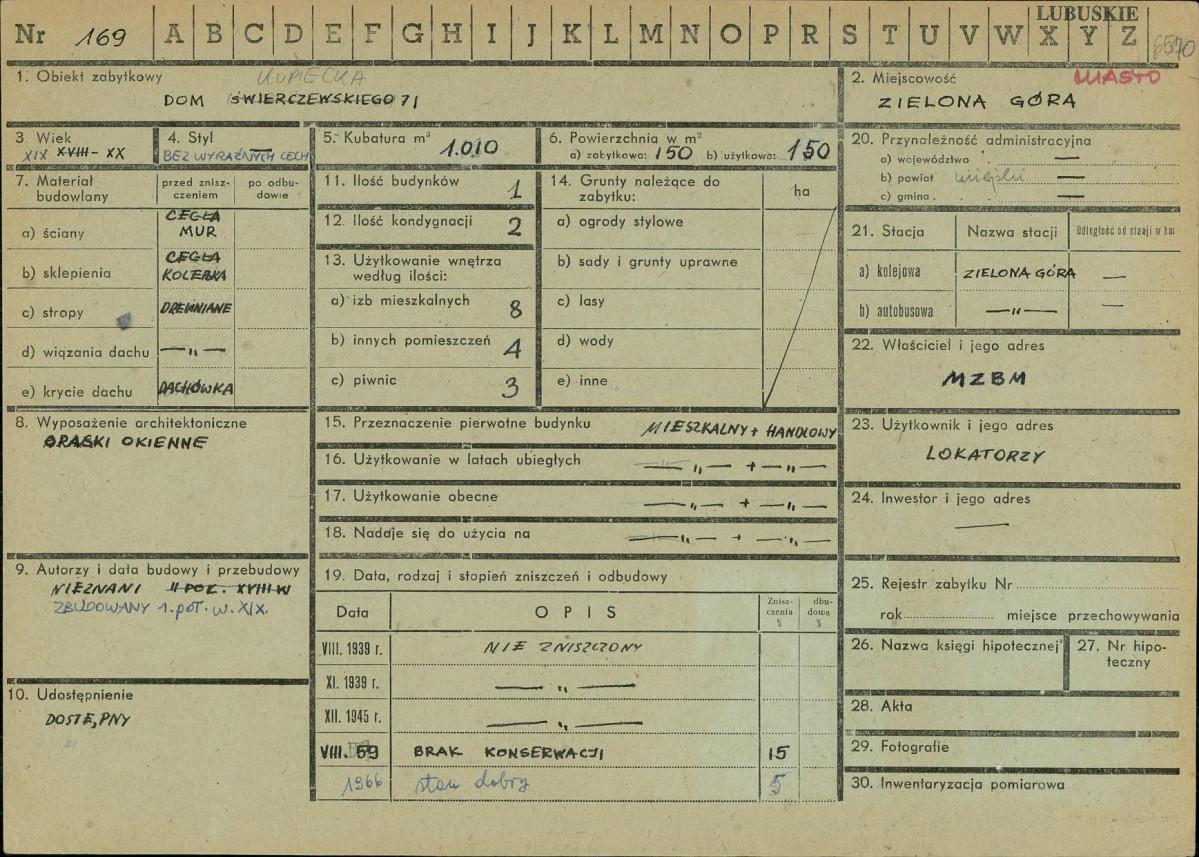 LUBUSKIE
Nr 169 A B C D E F G H I J K L M N O P R S T U V W X Y Z 6570
1. Obiekt zabytkowy KUPIECKA
DOM ŚWIERCZEWSKIEGO 71
2. Miejscowość MIASTO
ZIELONA GÓRA
3 Wiek
XIX XVIII - XX
4. Styl
BEZ WYRAŹNYCH CECH
5. Kubatura m³ 1.010
6. Powierzchnia w m²
a) zabytkowa: 150 b) użytkowa: 150
7. Materiał budowlany
przed zniszczeniem
po odbudowie
a) ściany CEGŁA MUR
b) sklepienia CEGŁA KOLEBKA
c) stropy DREWNIANE
d) wiązania dachu — „ —
e) krycie dachu DACHÓWKA
8. Wyposażenie architektoniczne
OPASKI OKIENNE
9. Autorzy i data budowy i przebudowy
NIEZNANI II POŁ. XVIII W
ZBUDOWANY 1. poł. w. XIX.
10. Udostępnienie
DOSTĘPNY
11. Ilość budynków 1
12. Ilość kondygnacji 2
13. Użytkowanie wnętrza
według ilości:
a) izb mieszkalnych 8
b) innych pomieszczeń 4
c) piwnic 3
14. Grunty należące do
zabytku: ha
a) ogrody stylowe
b) sady i grunty uprawne
c) lasy
d) wody
e) inne
15. Przeznaczenie pierwotne budynku MIESZKALNY + HANDLOWY
16. Użytkowanie w latach ubiegłych — „ — + — „ —
17. Użytkowanie obecne — „ — + — „ —
18. Nadaje się do użycia na — „ — + — „ —
19. Data, rodzaj i stopień zniszczeń i odbudowy
Data OPIS Zniszczenia % dbudowa %
VIII. 1939 r. NIE ZNISZCZONY
XI. 1939 r. — „ —
XII. 1945 r. — „ —
VIII. 59 BRAK KONSERWACJI 15
1966 stan dobry 5
20. Przynależność administracyjna
a) województwo —
b) powiat miejski —
c) gmina —
21. Stacja Nazwa stacji Odległość od stacji w km
a) kolejowa ZIELONA GÓRA —
b) autobusowa — „ — —
22. Właściciel i jego adres
MZBM
23. Użytkownik i jego adres
LOKATORZY
24. Inwestor i jego adres
—
25. Rejestr zabytku Nr
rok miejsce przechowywania
26. Nazwa księgi hipotecznej
27. Nr hipoteczny
28. Akta
29. Fotografie
30. Inwentaryzacja pomiarowa